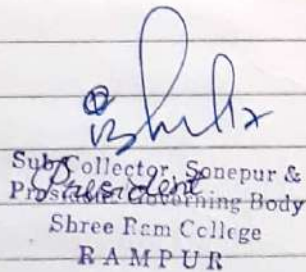 Sub-Collector, Sonepur &
President Governing Body
Shree Ram College
RAMPUR